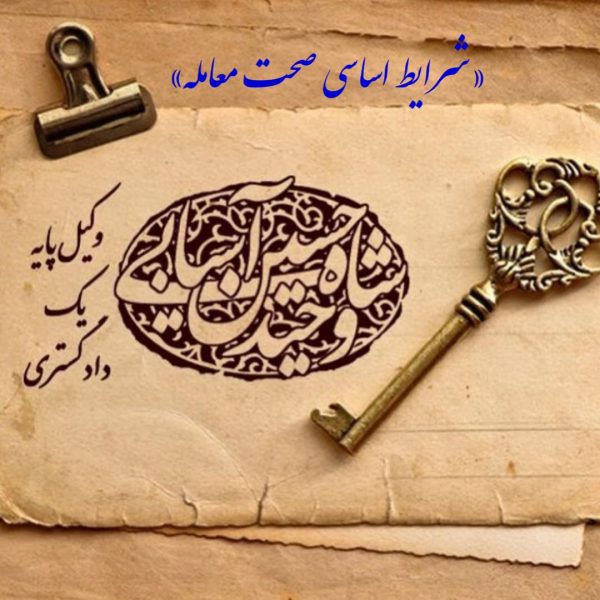 «شرایط اساسی صحت معامله»
وحید شاه حسین
وکیل پایه
یک
دادگستری